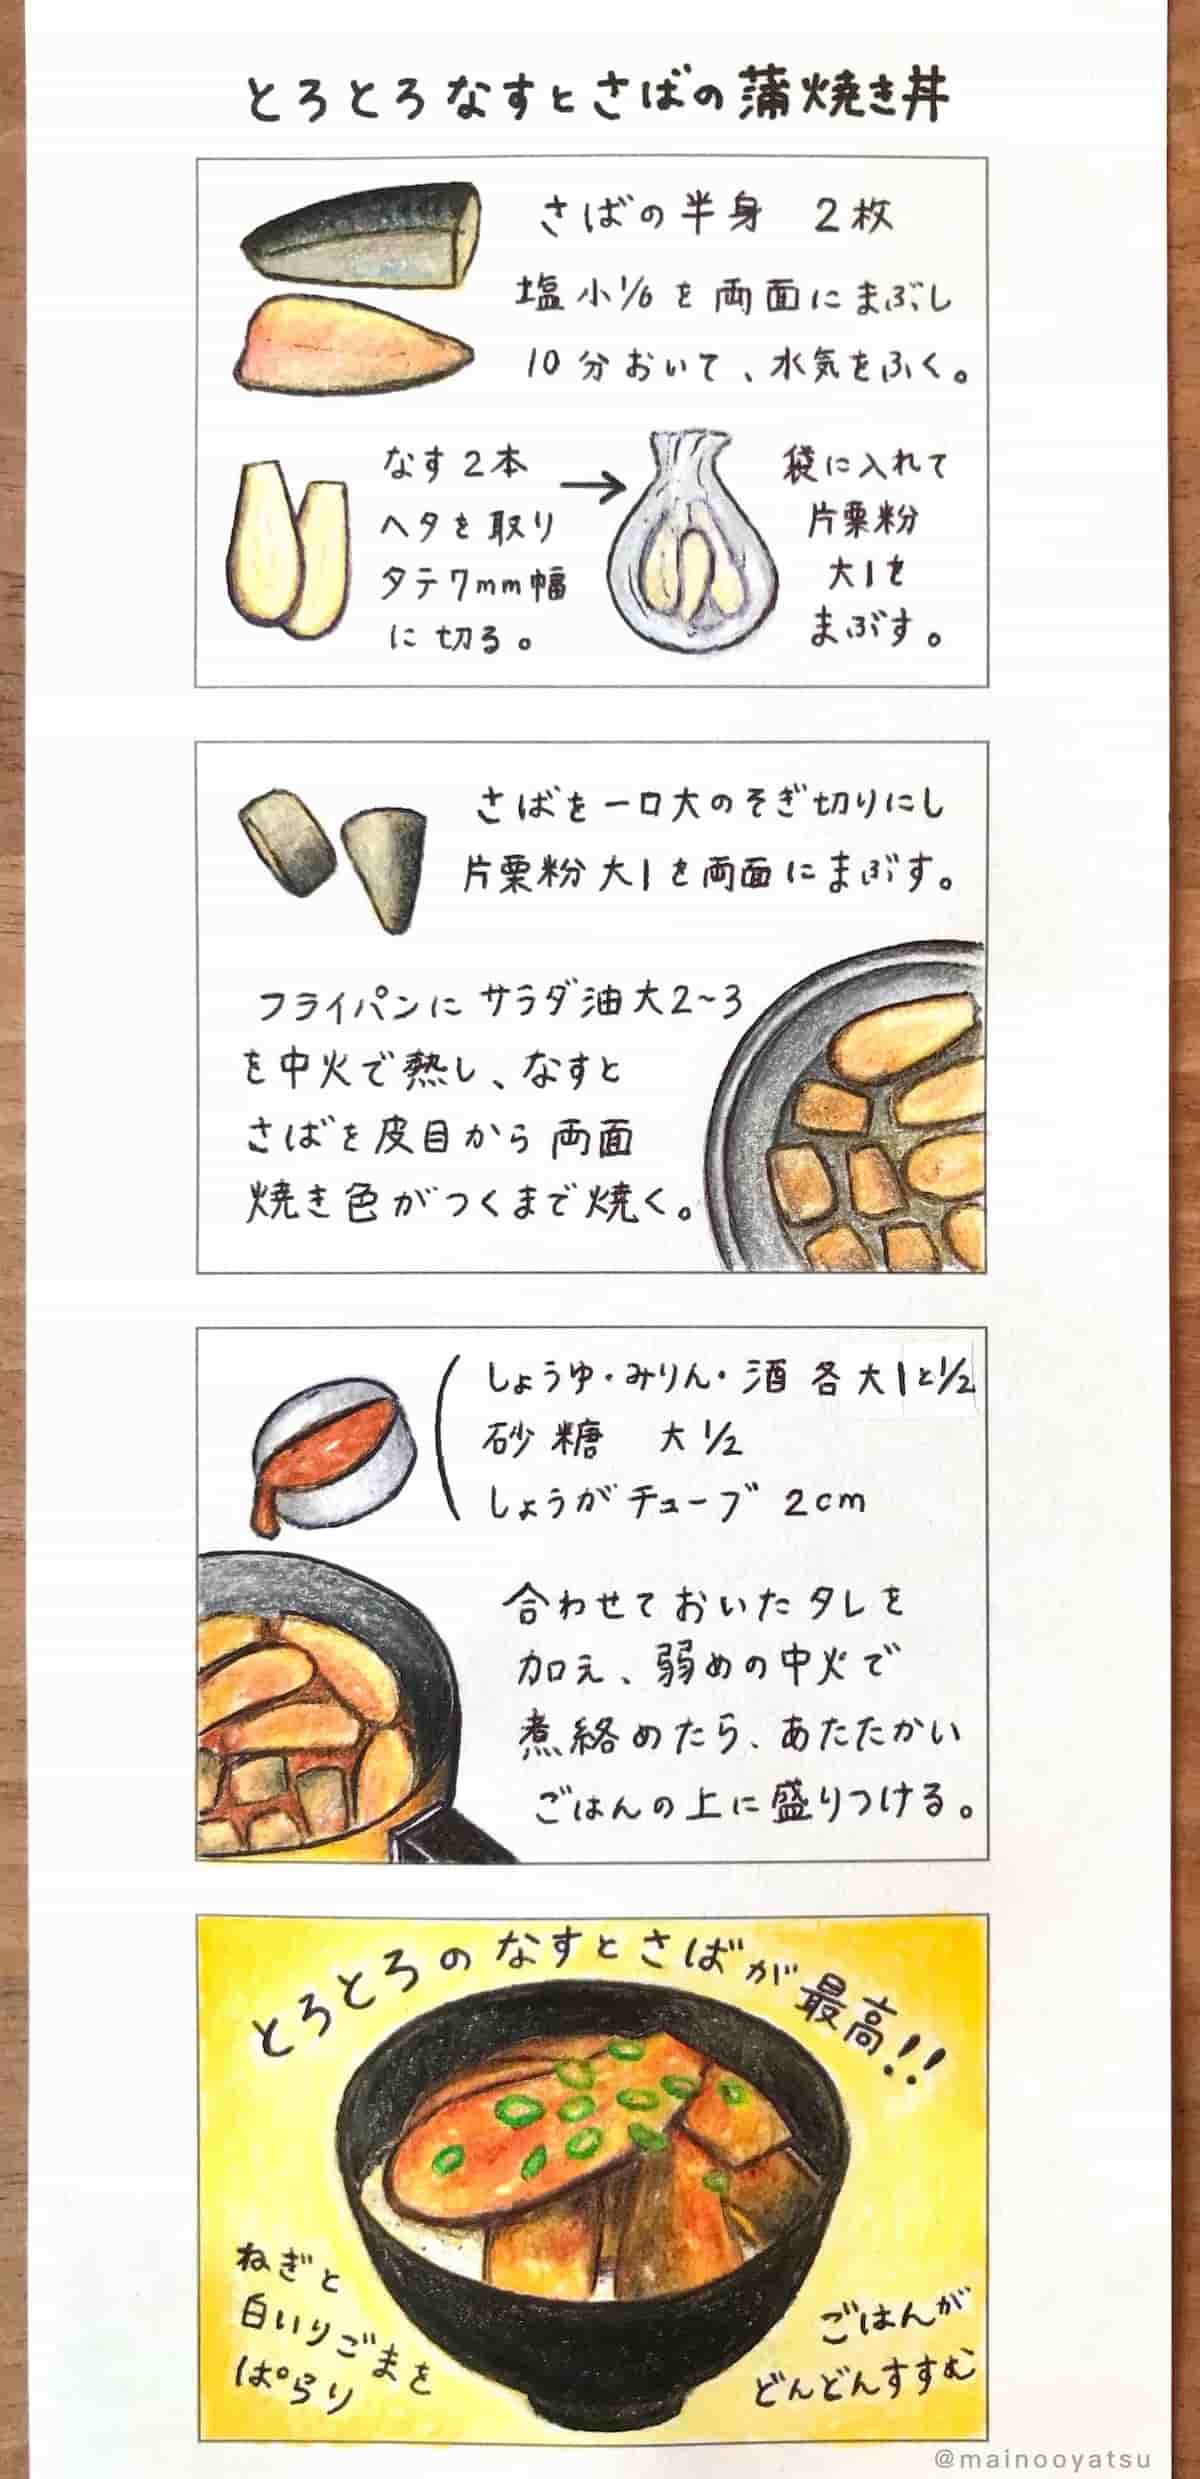 とろとろなすとさばの蒲焼き丼
さばの半身 2枚
塩小1/6を両面にまぶし
10分おいて、水気をふく。
なす2本
ヘタを取り
タテ7mm幅
に切る。
→
袋に入れて
片栗粉
大1を
まぶす。
さばを一口大のそぎ切りにし
片栗粉大1を両面にまぶす。
フライパンにサラダ油大2~3
を中火で熱し、なすと
さばを皮目から両面
焼き色がつくまで焼く。
しょうゆ・みりん・酒 各大1と1/2
砂糖 大1/2
しょうがチューブ 2cm
合わせておいたタレを
加え、弱めの中火で
煮絡めたら、あたたかい
ごはんの上に盛りつける。
とろとろのなすとさばが最高!!
ねぎと
白いりごまを
ぱらり
ごはんが
どんどんすすむ
@mainooyatsu